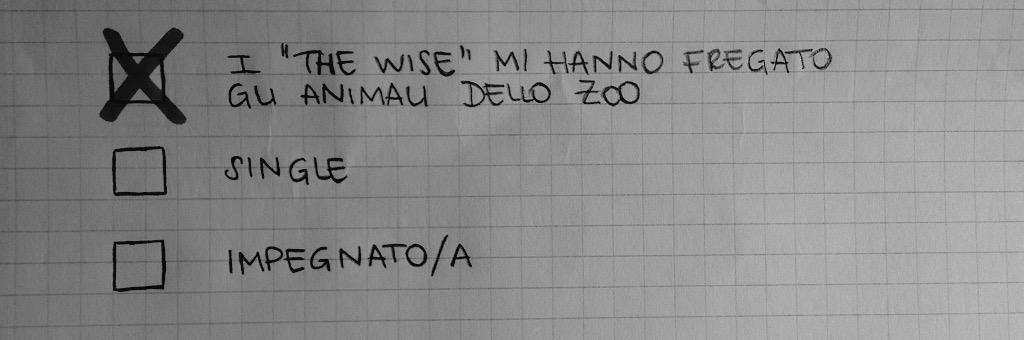 I "THE WISE" MI HANNO FREGATO
GLI ANIMALI DELLO ZOO
SINGLE
IMPEGNATO/A